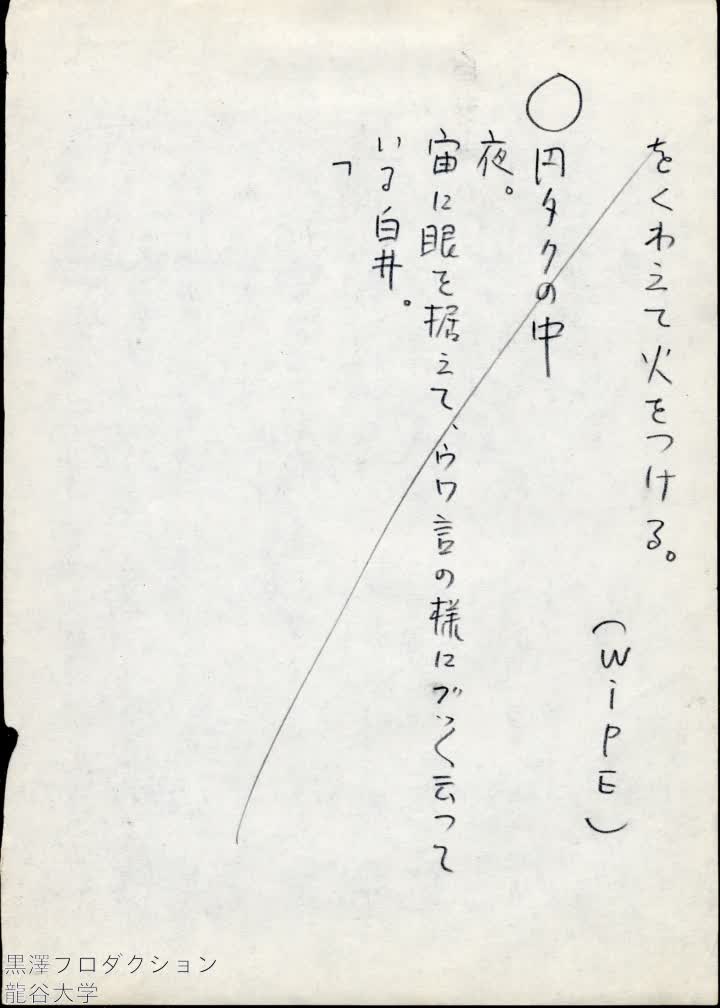 をくわえて火をつける。
(WiPE)
○円タクの中
夜。
宙に眼を据えて、ウワ言の様にブツ〱云って
いる白井。
「
黒澤プロダクション
龍谷大学